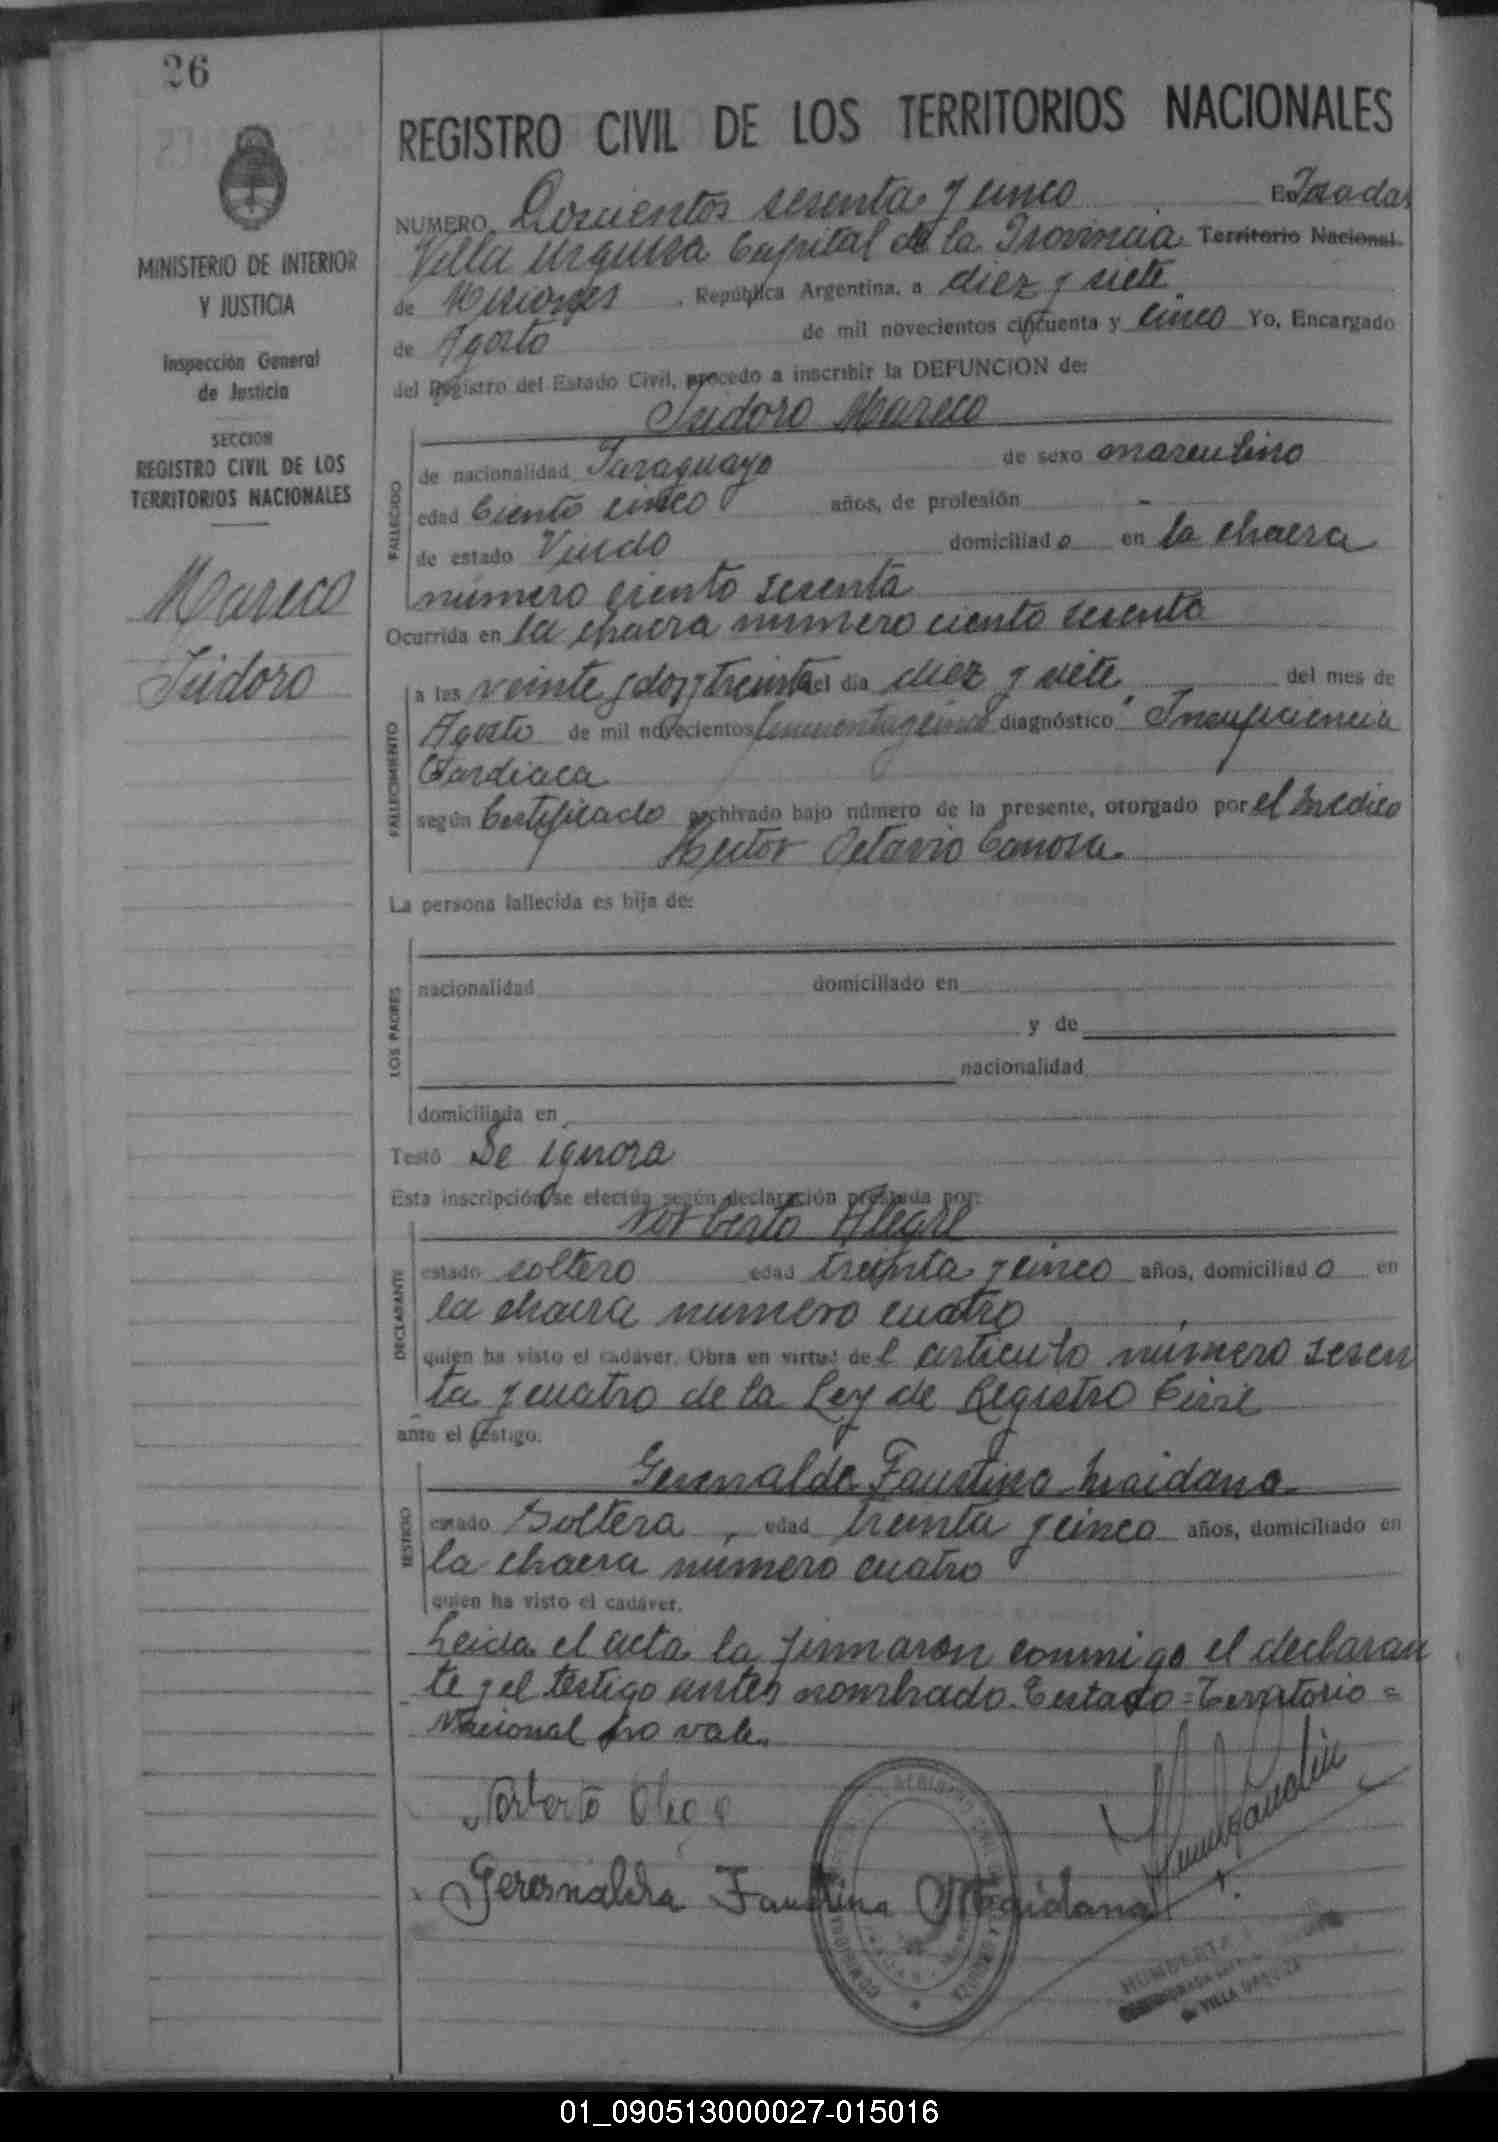 26
REGISTRO CIVIL DE LOS TERRITORIOS NACIONALES
MINISTERIO DE INTERIOR
Y JUSTICIA
Inspección General
de Justicia
SECCION
REGISTRO CIVIL DE LOS
TERRITORIOS NACIONALES
Mareco
Isidoro
NUMERO Doscientos sesenta y cinco En Posadas
Villa Urquiza Capital de la Provincia Territorio Nacional
de Misiones, República Argentina, a diez y siete
de Agosto de mil novecientos cincuenta y cinco Yo, Encargado
del Registro del Estado Civil, procedo a inscribir la DEFUNCION de:
Isidoro Mareco
FALLECIDO
de nacionalidad Paraguayo de sexo masculino
edad Ciento cinco años, de profesión -
de estado Viudo domiciliado en la chacra
número ciento sesenta
Ocurrida en la chacra número ciento sesenta
FALLECIMIENTO
a las veinte y dos y treinta el día diez y siete del mes de
Agosto de mil novecientos cincuenta y cinco diagnóstico "Insuficiencia
Cardiaca
según Certificado archivado bajo número de la presente, otorgado por el médico
Hector Octavio Canosa.
La persona fallecida es hija de:
LOS PADRES
nacionalidad domiciliado en
y de
nacionalidad
domiciliada en
Testó Se ignora
Esta inscripción se efectúa según declaración prestada por:
Norberto Alegre
DECLARANTE
estado soltero edad treinta y cinco años, domiciliado en
la chacra número cuatro
quien ha visto el cadáver. Obra en virtud del articulo número sesen
ta y cuatro de la Ley de Registro Civil
ante el testigo:
Geresnalda Faustina Maidana
TESTIGO
estado Soltera, edad treinta y cinco años, domiciliado en
la chacra número cuatro
quien ha visto el cadáver.
Leida el acta la firmaron conmigo el declaran
te y el testigo antes nombrado. Testado = Territorio =
Nacional no vale.
Norberto Alegre
Geresnalda Faustina Maidana
HUMBERTO
VILLA URQUIZA
01_090513000027-015016